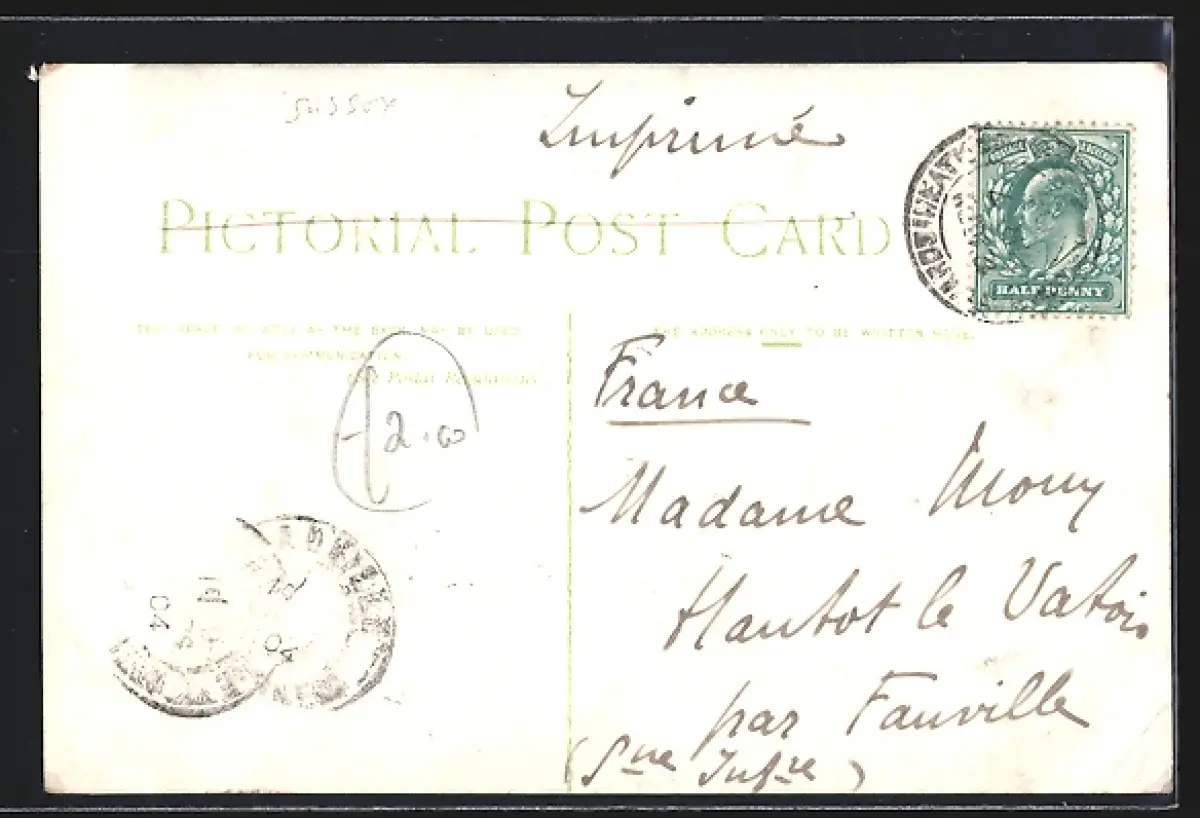 Sussex
Imprimé
PICTORIAL POST CARD
HALF PENNY
THIS SPACE AS WELL AS THE BACK MAY BE USED
FOR COMMUNICATION
Postal Regulations
THE ADDRESS ONLY TO BE WRITTEN HERE.
France
2.00
Madame Mony
Hautot le Vatois
par Fauville
(Sne Infre)
04
04